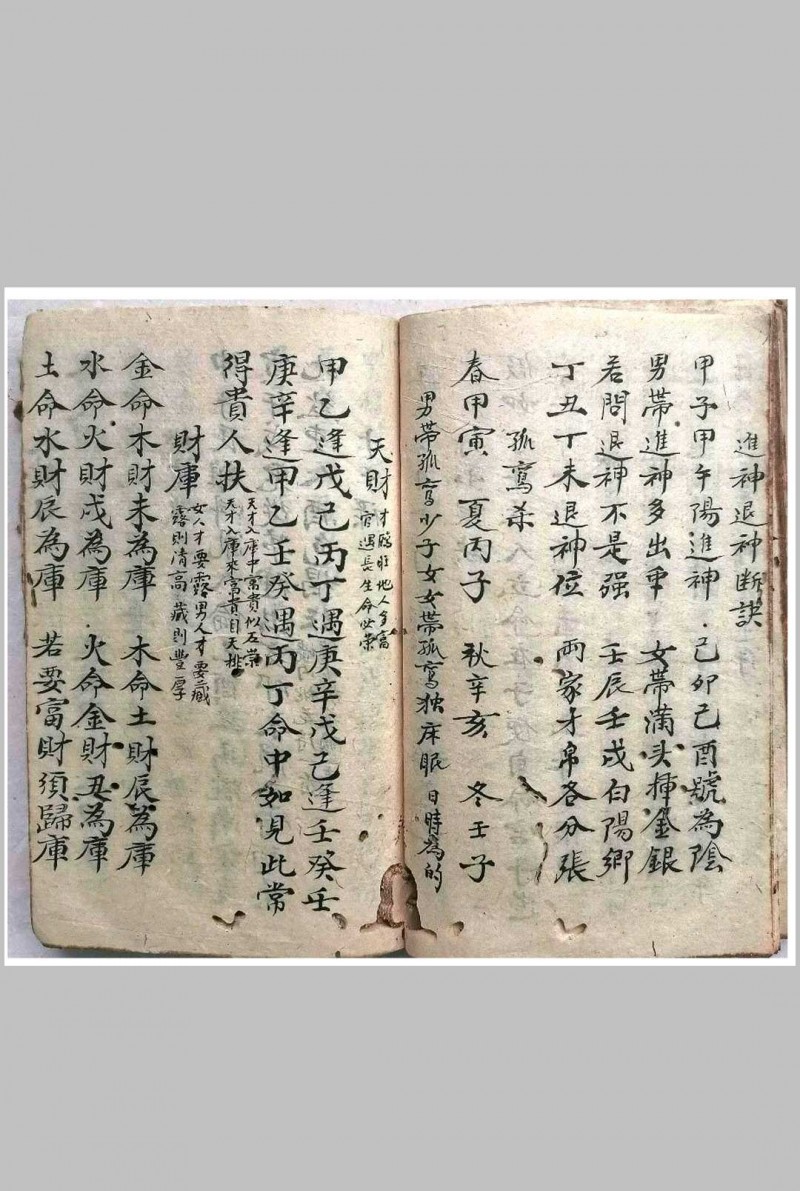 進神退神断訣
甲子甲午陽進神 己卯己酉號為陰
男帶進神多出手 女帶滿头揷金銀
若問退神不是强 壬辰壬戌白陽鄉
丁丑丁未退神位 兩家才帛各分張
孤鸾杀
春甲寅 夏丙子 秋辛亥 冬壬子
男帶孤鸾少子女女帶孤鸾独床眠 日時為的
天財
才 旺地人多富
官遇長生命必荣
甲乙逢戊己丙丁遇庚辛戊己逢壬癸壬
庚辛逢甲乙壬癸遇丙丁命中如見此常
得貴人扶
天才入庫中富貴似石崇
天才入庫來富貴自天排
財庫
女人才要露男人才要藏
露則清高藏則豐厚
金命木財未為庫 木命土財辰為庫
水命火財戌為庫 火命金財丑為庫
土命水財辰為庫 若要富財須歸庫